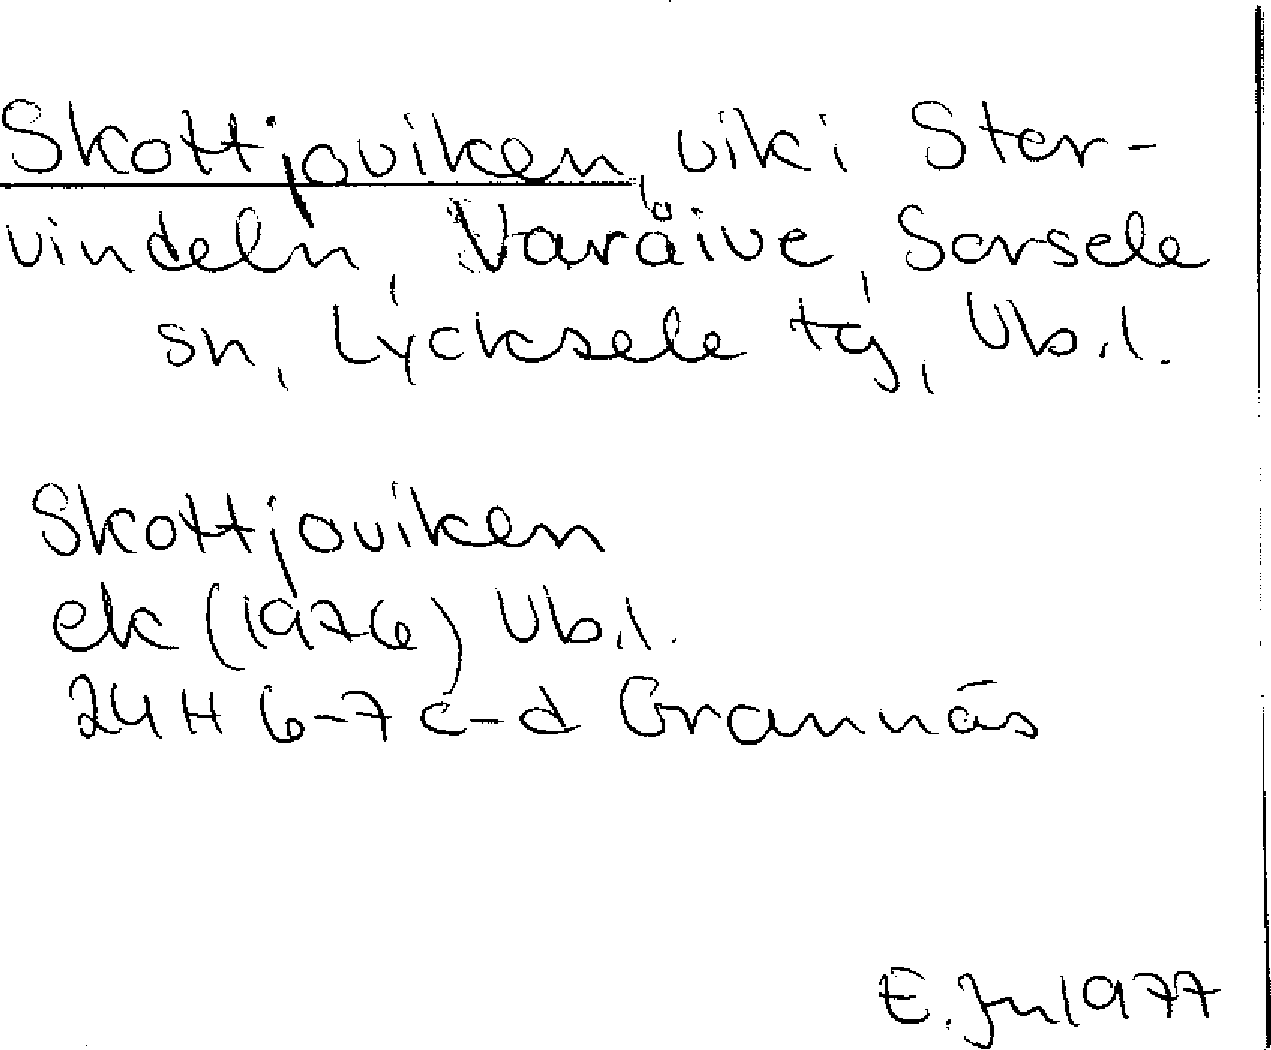 Skottjoviken, vik i Stor-
vindeln, Varåive, Sorsele
sn, Lycksele tg, Vb.l.
Skottjoviken
ek (1976) Vb.l.
24H 6-7 c-d Grannäs
E. Ju 1977